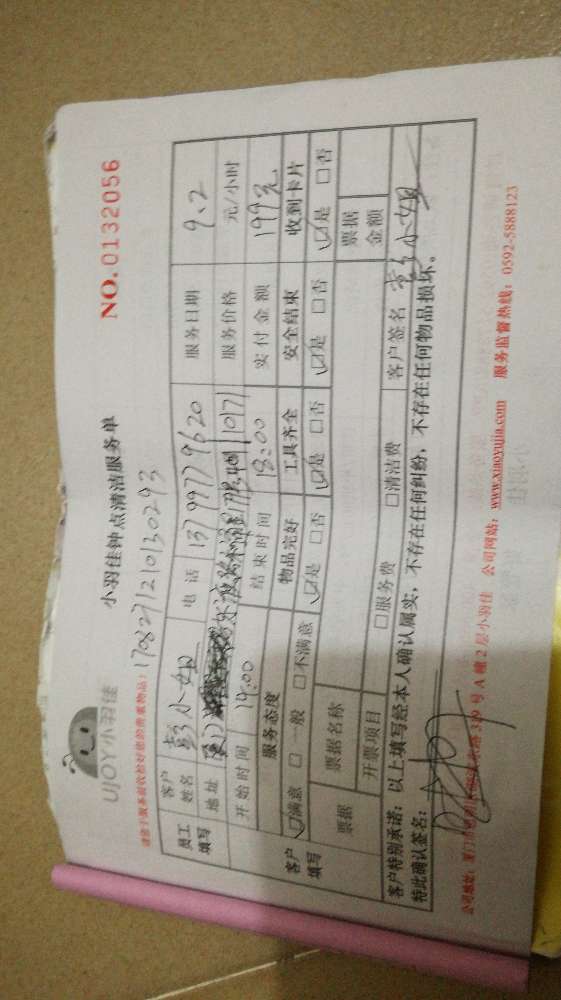 UJOY小羽佳
小羽佳钟点清洁服务单
NO.0132056
请您于服务前收捡好您的贵重物品!
170827121013 0293
员工填写 客户姓名 彭小姐 电话 13799779620 服务日期 9.2
地址 1017 服务价格 元/小时
开始时间 14:00 结束时间 18:00 实付金额 199元
客户填写 服务态度 物品完好 工具齐全 安全结束 收到卡片
☑满意 □一般 □不满意 ☑是 □否 ☑是 □否 ☑是 □否 ☑是 □否
票据 票据名称 票据金额
开票项目 □服务费 □清洁费 客户签名 彭小姐
客户特别承诺:以上填写经本人确认属实,不存在任何纠纷,不存在任何物品损坏。
特此确认签名:
公司地址:厦门 319号A幢2层小羽佳 公司网站:www.xiaoyujia.com 服务监督热线:0592-5888123